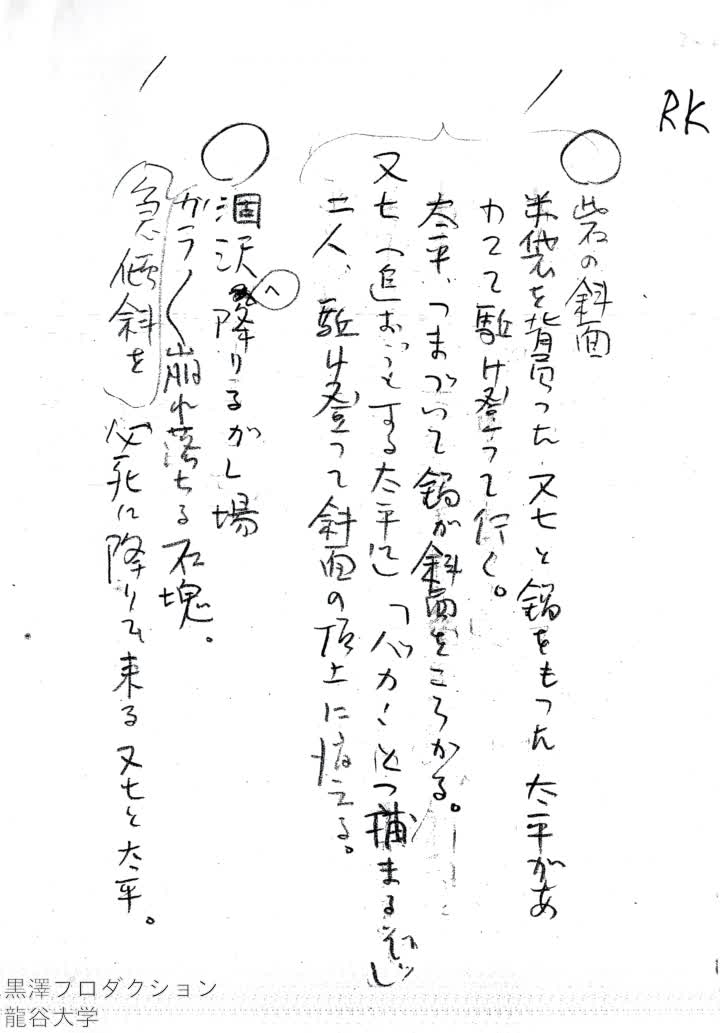 RK
○ 岩の斜面
米袋を背負った又七と鍋をもった太平があ
わてて駈け登って行く。
太平、つまづいて鍋が斜面をころがる。
又七(追おうとする太平に)「バカ!とっ捕まるぞッ」
二人、駈け登って斜面の頂上に消える。
○ 涸沢へ降りるガレ場
ガラ〱崩れ落ちる石塊。
急傾斜を必死に降りて来る又七と太平。
黒澤プロダクション
龍谷大学